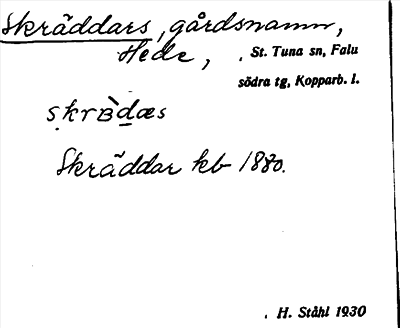 Skräddars, gårdsnamn,
Hede, . St. Tuna sn, Falu
södra tg, Kopparb. l.
Skräddar kb 1880.
. H. Ståhl 1930